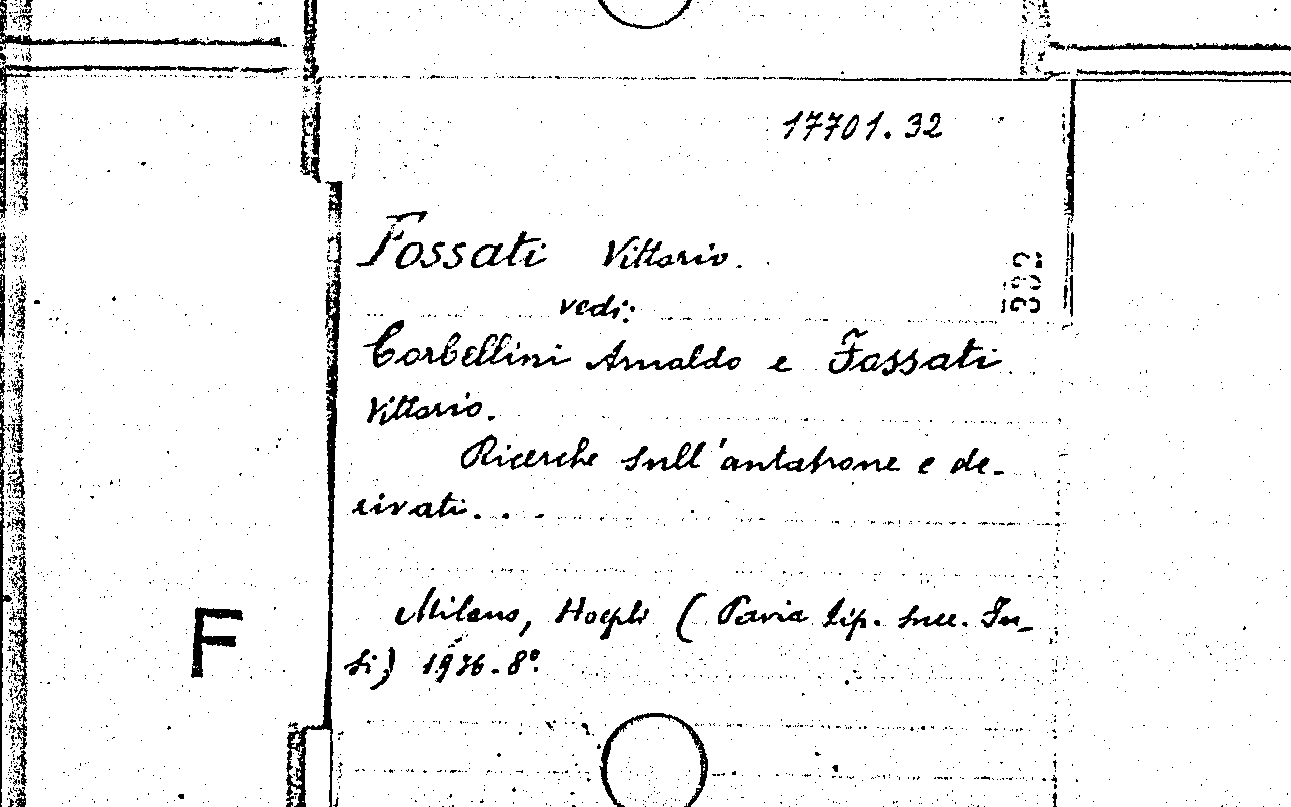 17701.32
Fossati Vittorio.
302
vedi:
Corbellini Arnaldo e Fossati
Vittorio.
Ricerche sull'antatrone e de-
rivati...
Milano, Hoepli (Pavia tip. Succ. Fu-
si) 1936. 8º.
F